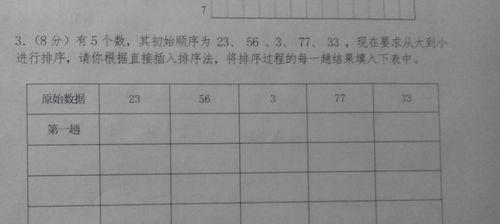 7
3.（8分）有5个数，其初始顺序为 23、 56 、3、 77、 33 ，现在要求从大到小
进行排序，请你根据直接插入排序法，将排序过程的每一趟结果填入下表中。
原始数据 23 56 3 77 33
第一趟